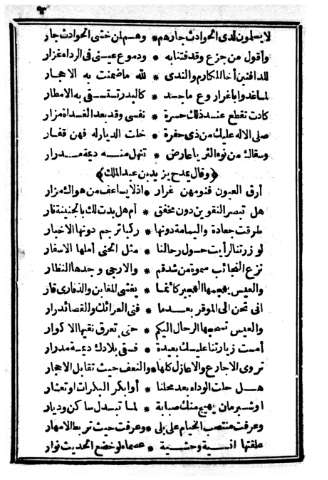 لا يسلمون لدى الحوادث جارهم * وهم لمن خشى الحوادث جار
وأقول من جزع وقد فتنا به * ودموع عيني في الرداء غزار
للدافنين أخا المكارم والندى * لله ما ضمنت به الاحجار
لما غدوا باغر أروع ماجد * كالبدر تستسقى به الامطار
كادت تقطع عند ذلك حسرة * نفسي وقد بعد الغداة مزار
صلى الاله عليك من ذي حفرة * خلت الديار له فهن قفار
وسقاك من نوء الثريا عارض * تنهل منه ديمة مدرار
(وقال يمدح يزيد بن عبد الملك)
أرق العيون فنومهن غرار * اذ لا يساعف من هواك مزار
هل تبصر النقوين دون مخفق * أم هل بدت لك بالجنينة نار
طرقت جعادة واليمامة دونها * ركبا ترجم دونها الاخبار
لو زرتنا لرأيت حول رحالنا * مثل الحنى أملها الاسفار
نزع النجائب سموة من شدقم * والارحبي وجدها النظار
والعيس يهجمها الهجير كأنما * يغشى المغابن والذفارى قار
انى تحن الى الموقر بعدما * فنى العرائك والقصائد رار
والعيس تسحجها الرحال اليكم * حتى تعرق نقيها الاكوار
أمست زيارتنا عليك بعيدة * فسقى بلادك ديمة مدرار
تروى الاجارع والاعازل كلها * والنعف حيث تقابل الاحجار
هل حلت الوداء بعد محلنا * أو أبكر البكرات أو تعشار
أو شبرمان يهيج منك صبابة * لما تبدل ساكن وديار
وعرفت منتصب الخيام على بلى * وعرفت حيث تربط الامهار
علقتها انسية وحشية * عصماء لو خضع الحديث نوار